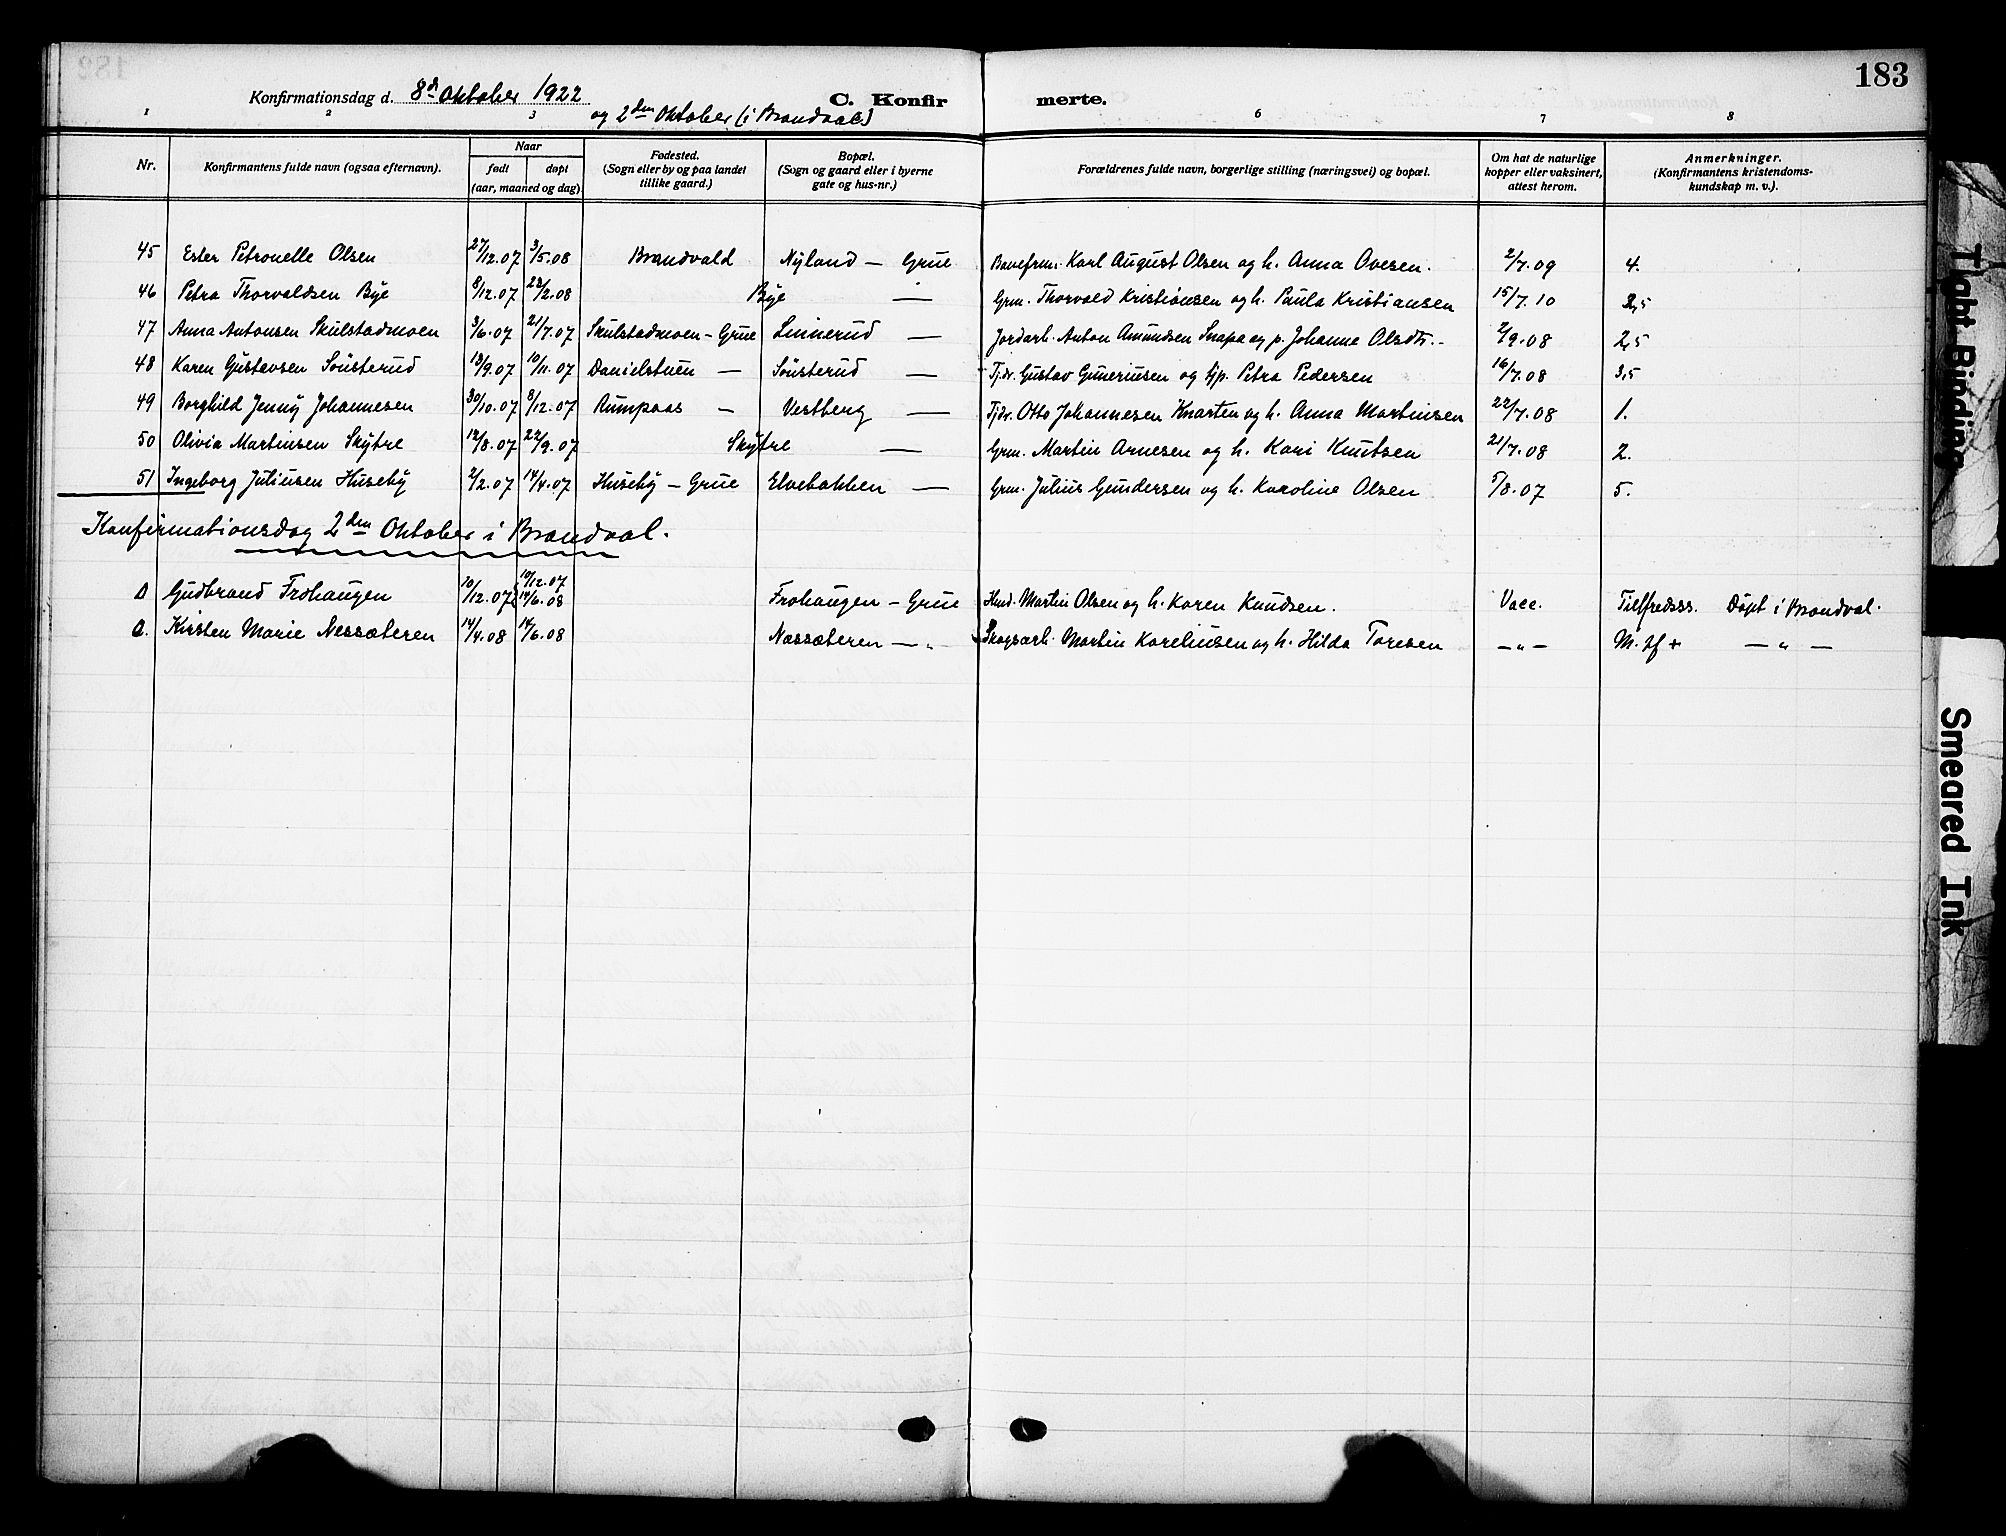 183
Konfirmationsdag d. 8d Oktober 1922 C. Konfirmerte.
og 2den Oktober (i Brandval)
1 2 3 6 7 8
Nr. Konfirmantens fulde navn (ogsaa efternavn). Naar født døpt (aar, maaned og dag) Fødested. (Sogn eller by og paa landet tillike gaard.) Bopæl. (Sogn og gaard eller i byerne gate og hus-nr.) Forældrenes fulde navn, borgerlige stilling (næringsvei) og bopæl. Om hat de naturlige kopper eller vaksinert, attest herom. Anmerkninger. (Konfirmantens kristendoms-kundskap m. v.).
45 Ester Petronelle Olsen 27/12.07 3/5.08 Brandvald Nyland — Grue Banefrm. Karl August Olsen og h. Anna Ovesen. 2/7.09 4.
46 Petra Thorvaldsen Bye 8/12.07 23/2.08 Bye — Grm. Thorvald Kristiansen og h. Paula Kristiansen 15/7.10 2,5
47 Anna Antonsen Skulstadmoen 3/6.07 21/7.07 Skulstadmoen - Grue Linnerud — Jordarb. Anton Amundsen Snapa og p. Johanne Olsdtr. 2/9.08 2,5
48 Karen Gustavsen Sønsterud 13/9.07 10/11.07 Danielstuen — Sønsterud — Tjdr. Gustav Guneriusen og Petra Pedersen 16/7.08 3,5
49 Borghild Jenny Johannesen 30/10.07 8/12.07 Rumpaas — Vestberg — Tjdr. Otto Johannesen Knarten og h. Anna Martinsen 22/7.08 1.
50 Olivia Martinsen Skytre 12/8.07 22/9.07 Skytre — Grm. Martin Arnesen og h. Kari Knutsen 21/7.08 2.
51 Ingeborg Juliusen Huseby 2/2.07 14/4.07 Huseby — Grue Elvebakken — Grm. Julius Gundersen og h. Karoline Olsen 5/8.07 5.
Konfirmationsdag 2den Oktober i Brandval.
Gudbrand Frohaugen 10/12.07 10/12.07 14/6.08 Frohaugen — Grue Martin Olsen og h. Karen Knudsen. Vacc. Tilfredss. Døpt i Brandval.
Kirsten Marie Nessæteren 14/4.08 14/6.08 Næssæteren — „ Skogsarb. Martin Kareliusen og h. Hilda Toresen — „ — M. tf + — „ —
Tight Binding
Smeared Ink